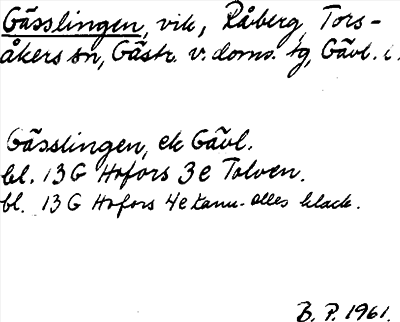 Gässlingen, vik, Råberg, Tors-
åkers sn, Gästr. v. doms. tg, Gävl. l.
Gässlingen, ek Gävl.
bl. 13 G Hofors 3 e Tolven.
bl. 13 G Hofors 4 e
B. P. 1961.